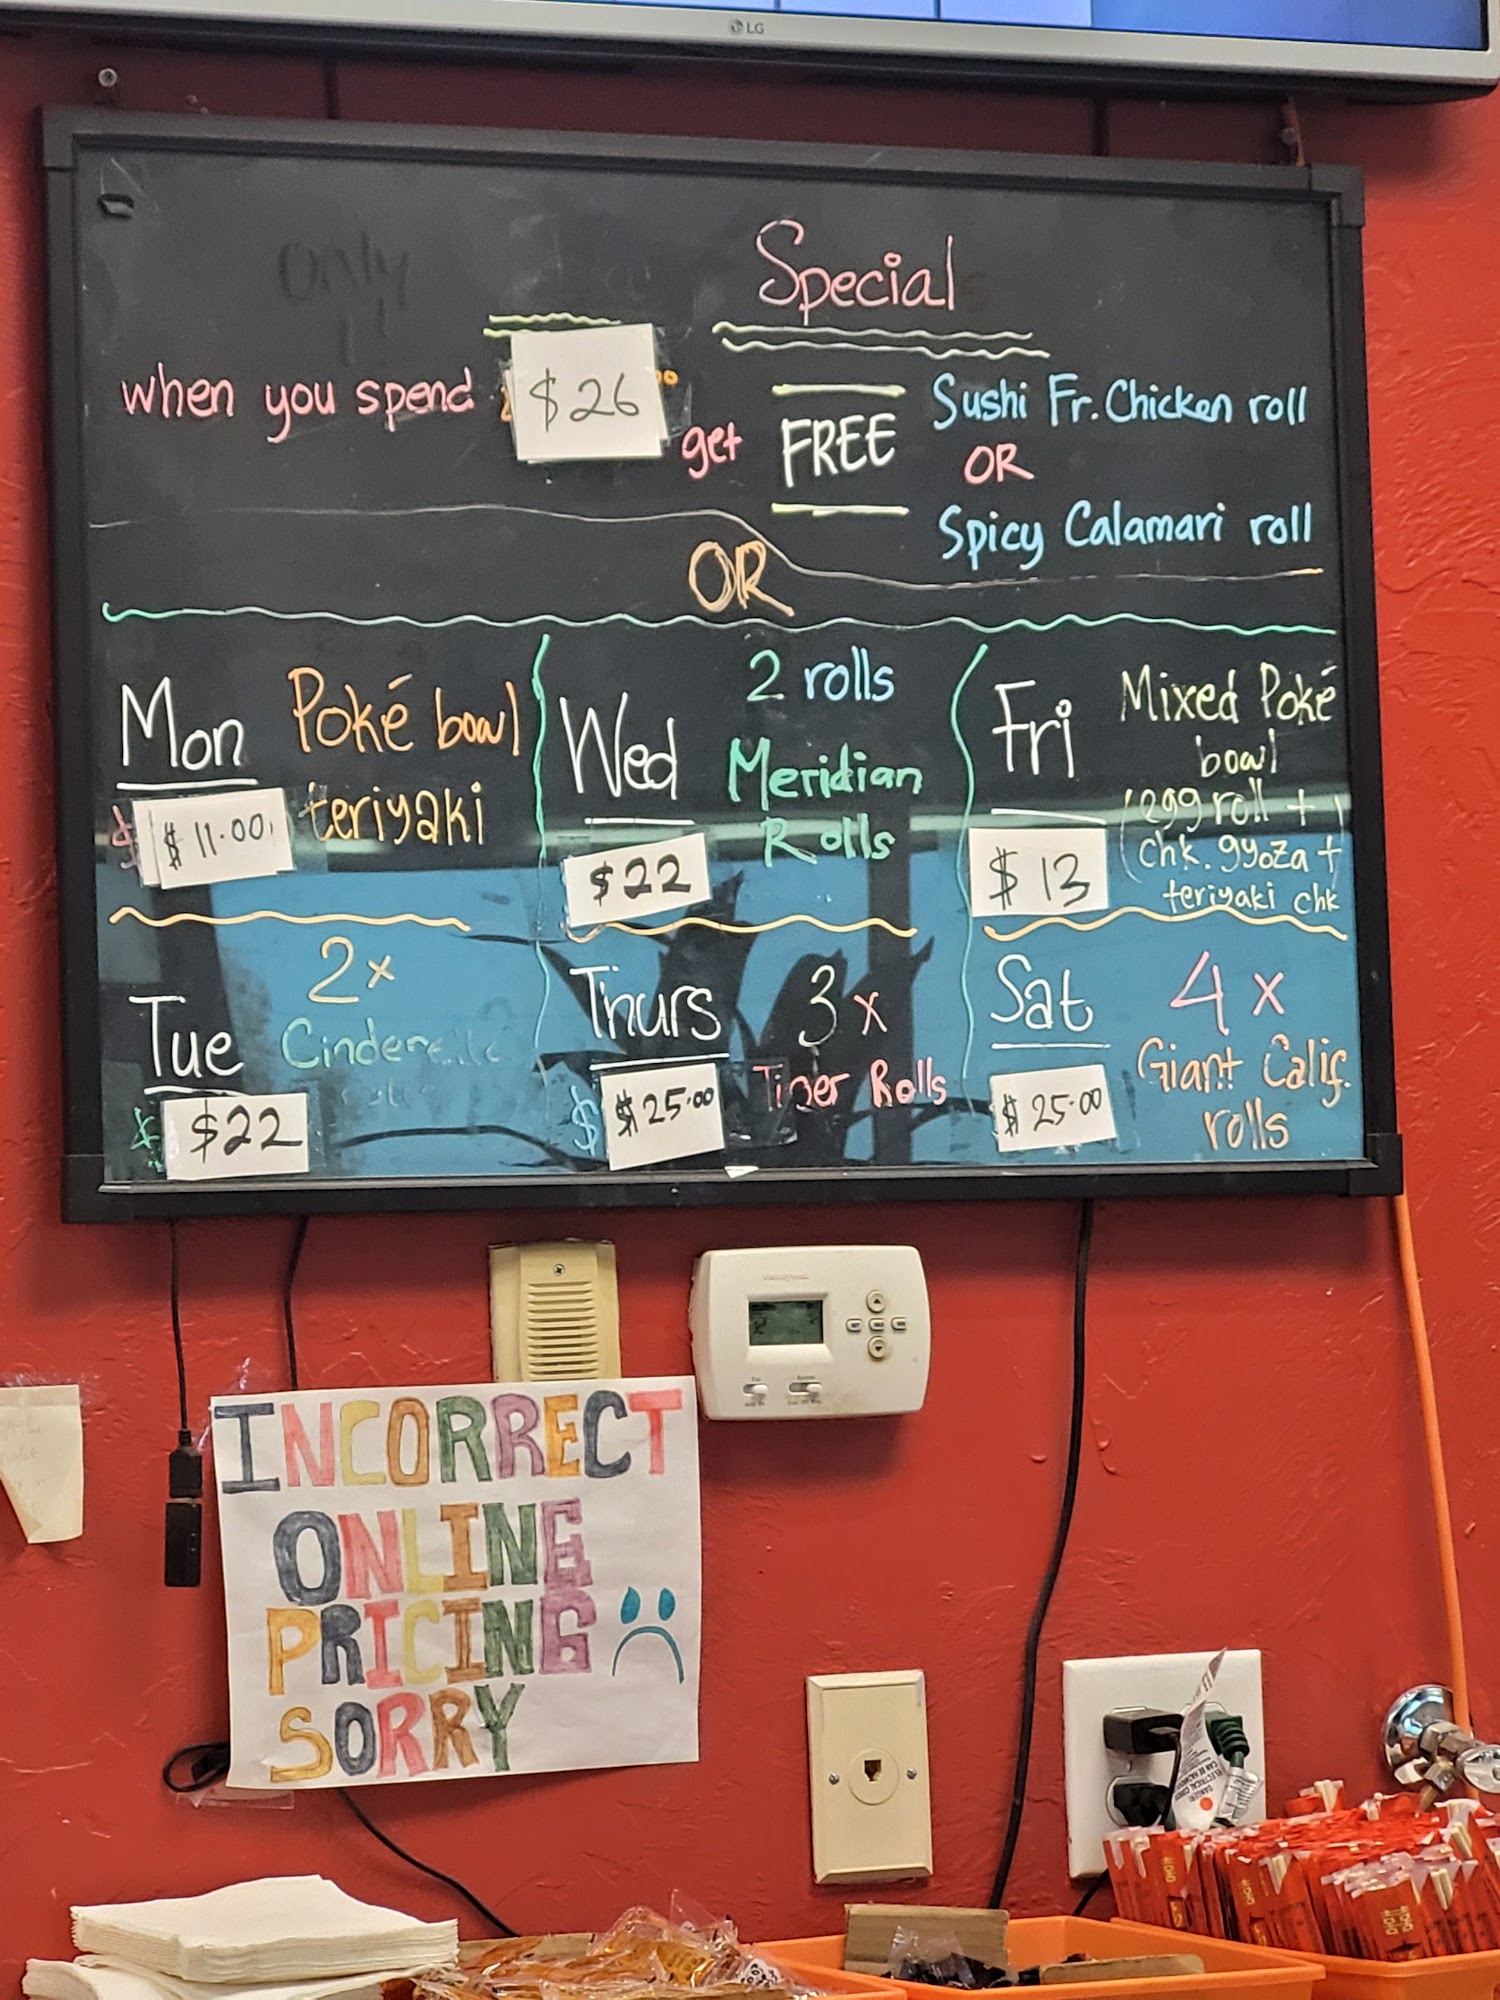 LG
Only
Special
when you spend $26 get FREE
Sushi Fr. Chicken roll
OR
Spicy Calamari roll
OR
Mon
Poké bowl
teriyaki
$11.00
Wed
2 rolls
Meridian
Rolls
$22
Fri
Mixed Poké
bowl
(egg roll +
chk. gyoza +
teriyaki chk
$13
Tue
2x
$22
Thurs
3x
Tiger Rolls
$25.00
Sat
4x
Giant Calif.
rolls
$25.00
INCORRECT
ONLINE
PRICING
SORRY